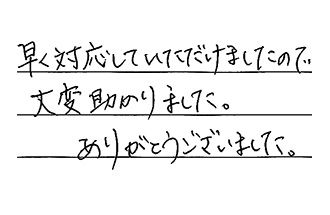 早く対応していただけましたので
大変助かりました。
ありがとうございました。